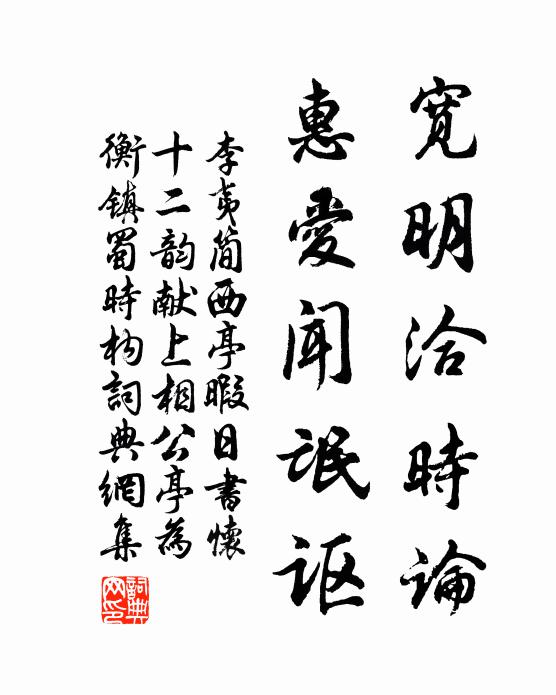 宽明洽時論
惠愛闻氓讴
李夷简西亭暇日書懷
十二韵献上相公亭為
衡鎮蜀時构詞典網集
詞典
网印